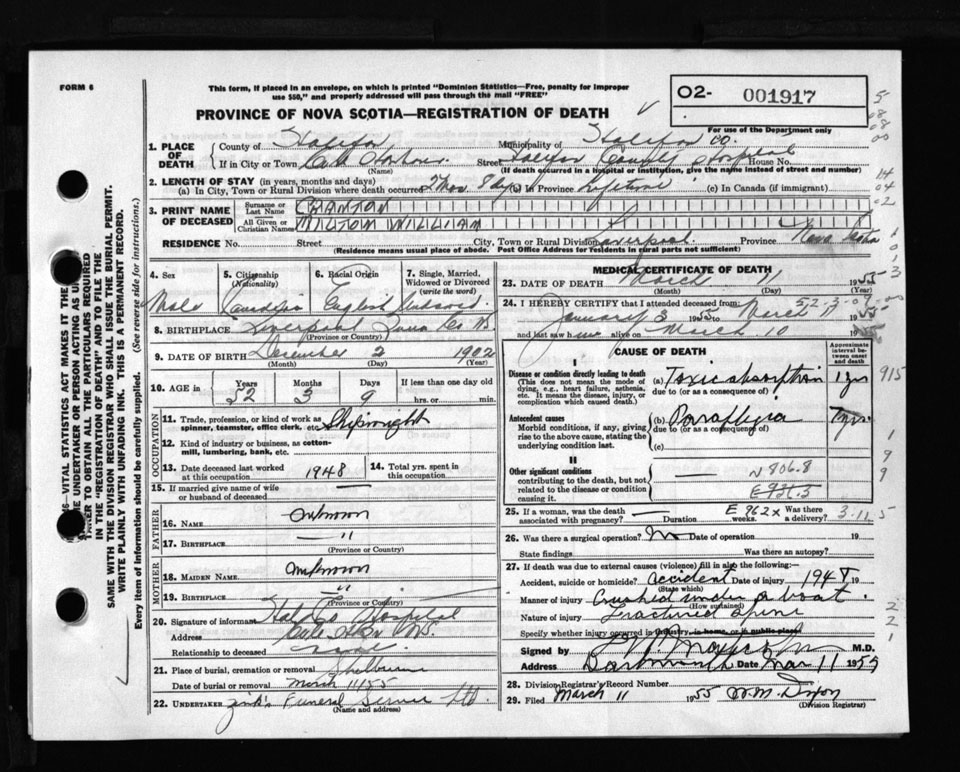 FORM 6
This form, if placed in an envelope, on which is printed "Dominion Statistics—Free, penalty for improper
use $50," and properly addressed will pass through the mail "FREE"
O2- 001917
PROVINCE OF NOVA SCOTIA—REGISTRATION OF DEATH
For use of the Department only
1. PLACE OF DEATH
County of Halifax Municipality of Halifax CO.
If in City or Town Cole Harbour (Name) Street Halifax County Hospital House No.
(If death occurred in a hospital or institution, give the name instead of street and number)
2. LENGTH OF STAY (in years, months and days)
(a) In City, Town or Rural Division where death occurred 2 mos. 8 dys (b) In Province Lifetime (c) In Canada (if immigrant)
3. PRINT NAME OF DECEASED
Surname or Last Name CRANTON
All Given or Christian Names MILTON WILLIAM
RESIDENCE No. Street City, Town or Rural Division Liverpool Province Nova Scotia
(Residence means usual place of abode. Post Office Address for Residents in rural parts not sufficient)
4. Sex Male
5. Citizenship (Nationality) Canadian
6. Racial Origin English
7. Single, Married, Widowed or Divorced (write the word) Widowed
8. BIRTHPLACE Liverpool NS.
(Province or Country)
9. DATE OF BIRTH December 2 1902
(Month) (Day) (Year)
10. AGE in Years 52 Months 3 Days 9 If less than one day old
hrs. or min.
OCCUPATION
11. Trade, profession, or kind of work as spinner, teamster, office clerk, etc. Shipwright
12. Kind of industry or business, as cotton-mill, lumbering, bank, etc.
13. Date deceased last worked at this occupation 1948
14. Total yrs. spent in this occupation
15. If married give name of wife or husband of deceased —
FATHER
16. NAME Unknown
17. BIRTHPLACE — "
(Province or Country)
MOTHER
18. MAIDEN NAME Unknown
19. BIRTHPLACE "
(Province or Country)
20. Signature of informant Hal. Co. Hospital
Address Cole Hbr NS.
Relationship to deceased
21. Place of burial, cremation or removal Shelburne
Date of burial or removal March 11/55
22. UNDERTAKER Zink's Funeral Service Ltd
(Name and address)
MEDICAL CERTIFICATE OF DEATH
23. DATE OF DEATH March 11 1955
(Month) (Day)
24. I HEREBY CERTIFY that I attended deceased from
January 3 1955 to March 11 1955
and last saw him alive on March 10 19
CAUSE OF DEATH
Approximate interval between onset and death
Disease or condition directly leading to death
(This does not mean the mode of dying, e.g., heart failure, asthenia, etc. It means the disease, injury, or complication which caused death.)
(a) Toxic absorption 1 yr
due to (or as a consequence of)
Antecedent causes
Morbid conditions, if any, giving rise to the above cause, stating the underlying condition last.
(b) Paraplegia 7 yrs.
due to (or as a consequence of)
(c)
II
Other significant conditions
contributing to the death, but not related to the disease or condition causing it.
N 806.8
E 936.5
E 962X
25. If a woman, was the death associated with pregnancy? — Duration weeks. Was there a delivery?
3-11-5
26. Was there a surgical operation? No Date of operation 19
State findings Was there an autopsy?
27. If death was due to external causes (violence) fill in also the following:—
Accident, suicide or homicide? Accident Date of injury 1947 19
(State which)
Manner of injury Crushed under a boat.
(How sustained)
Nature of injury Fractured Spine
Specify whether injury occurred in industry, in home, or in public place
Signed by M.D.
Address Dartmouth Date Mar 11 1955
28. Division Registrar's Record Number
29. Filed March 11 1955 W.M. Dixon
(Division Registrar)
SAME WITH THE DIVISION REGISTRAR WHO SHALL ISSUE THE BURIAL PERMIT.
WRITE PLAINLY WITH UNFADING INK. THIS IS A PERMANENT RECORD.
Every item of information should be carefully supplied. (See reverse side for instructions.)